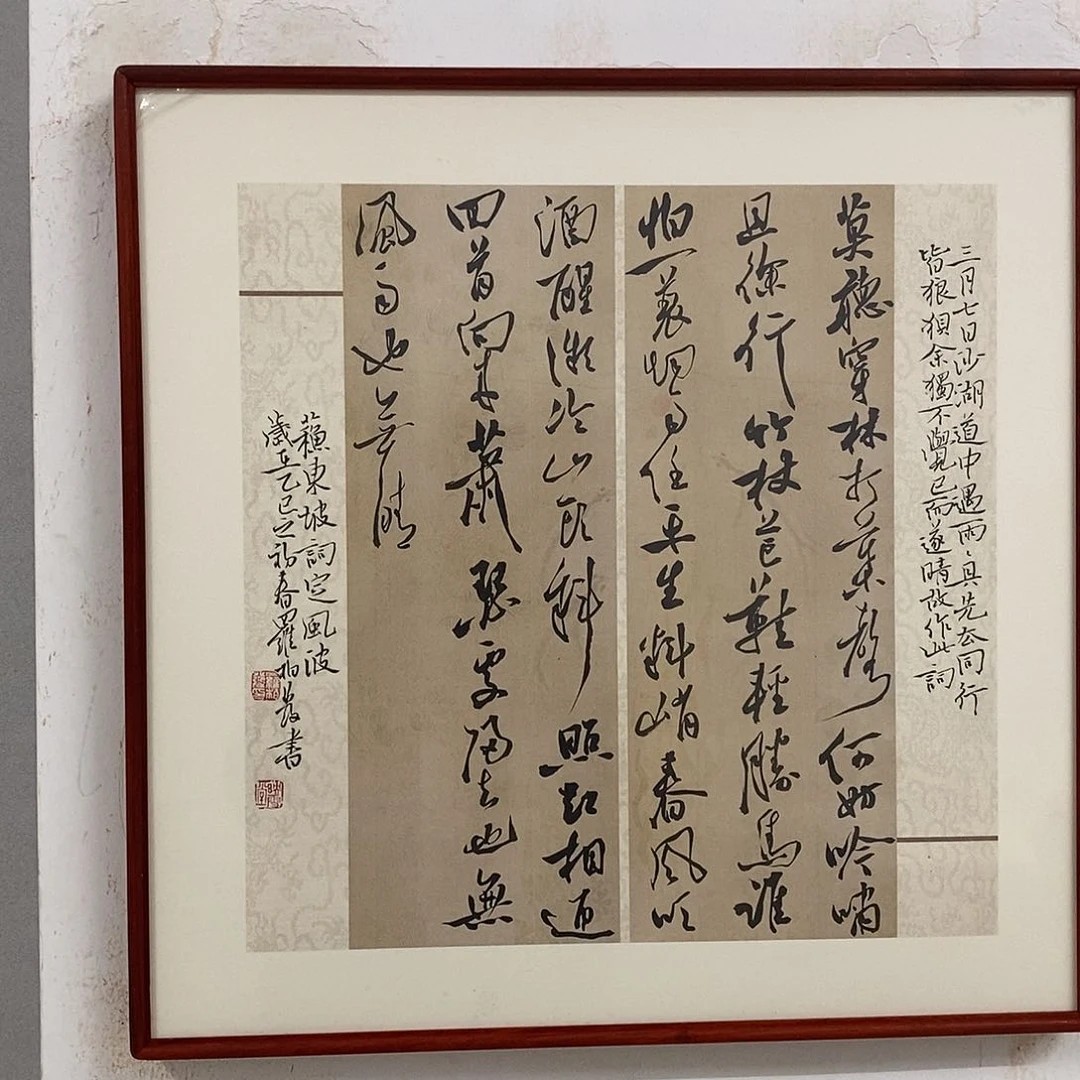 三月七日沙湖道中遇雨〻具先去同行
皆狼狽余獨不覺已而遂晴故作此詞
莫聽穿林打葉聲何妨吟嘯
且徐行竹杖芒鞋輕勝馬誰
怕一蓑烟雨任平生料峭春風吹
酒醒微冷山頭斜照却相迎
回首向來蕭瑟處歸去也無
風雨也無晴
蘓東坡詞定風波
歲在乙巳之初春羅柏書